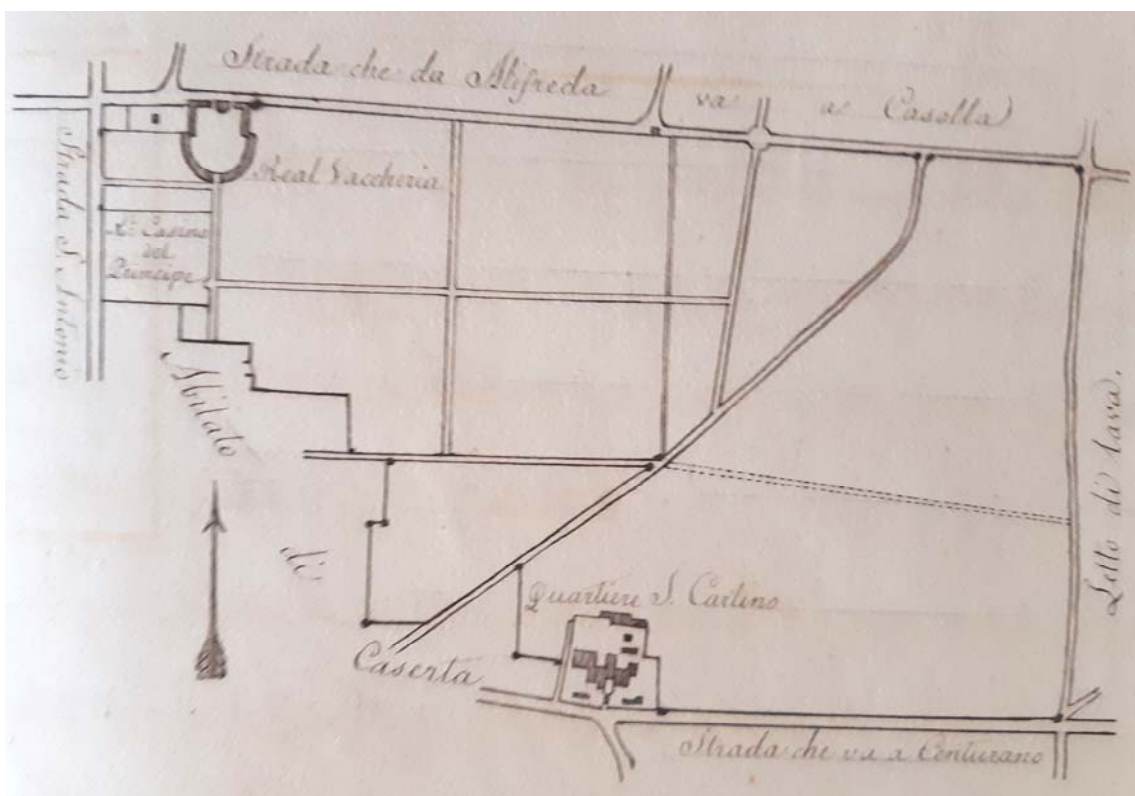 Strada che da Alifreda va a Casolla
Strada S. Antonio
Real Vaccheria
R.l Casino
del
Principe
Abitato
di
Caserta
Quartiere S. Carlino
Letto di Lava.
Strada che va a Centurano